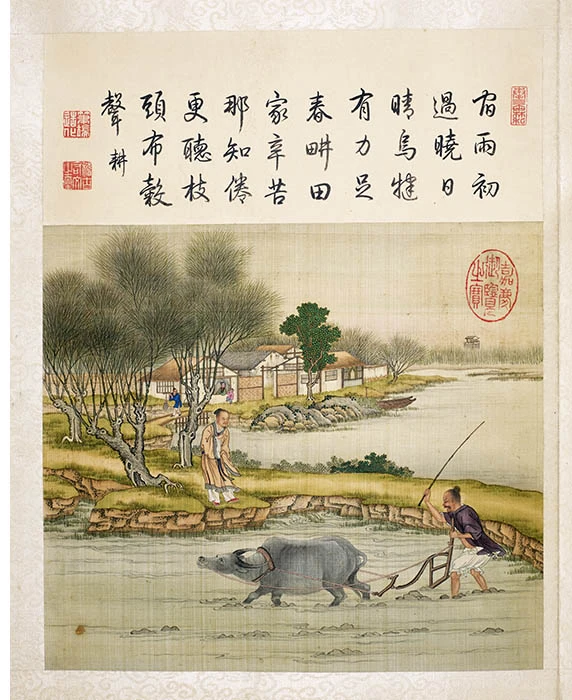 宿雨初
過曉日
晴烏犍
有力足
春畊田
家辛苦
那知倦
更聽枝
頭布穀
聲 耕
嘉慶
御覽
之寶